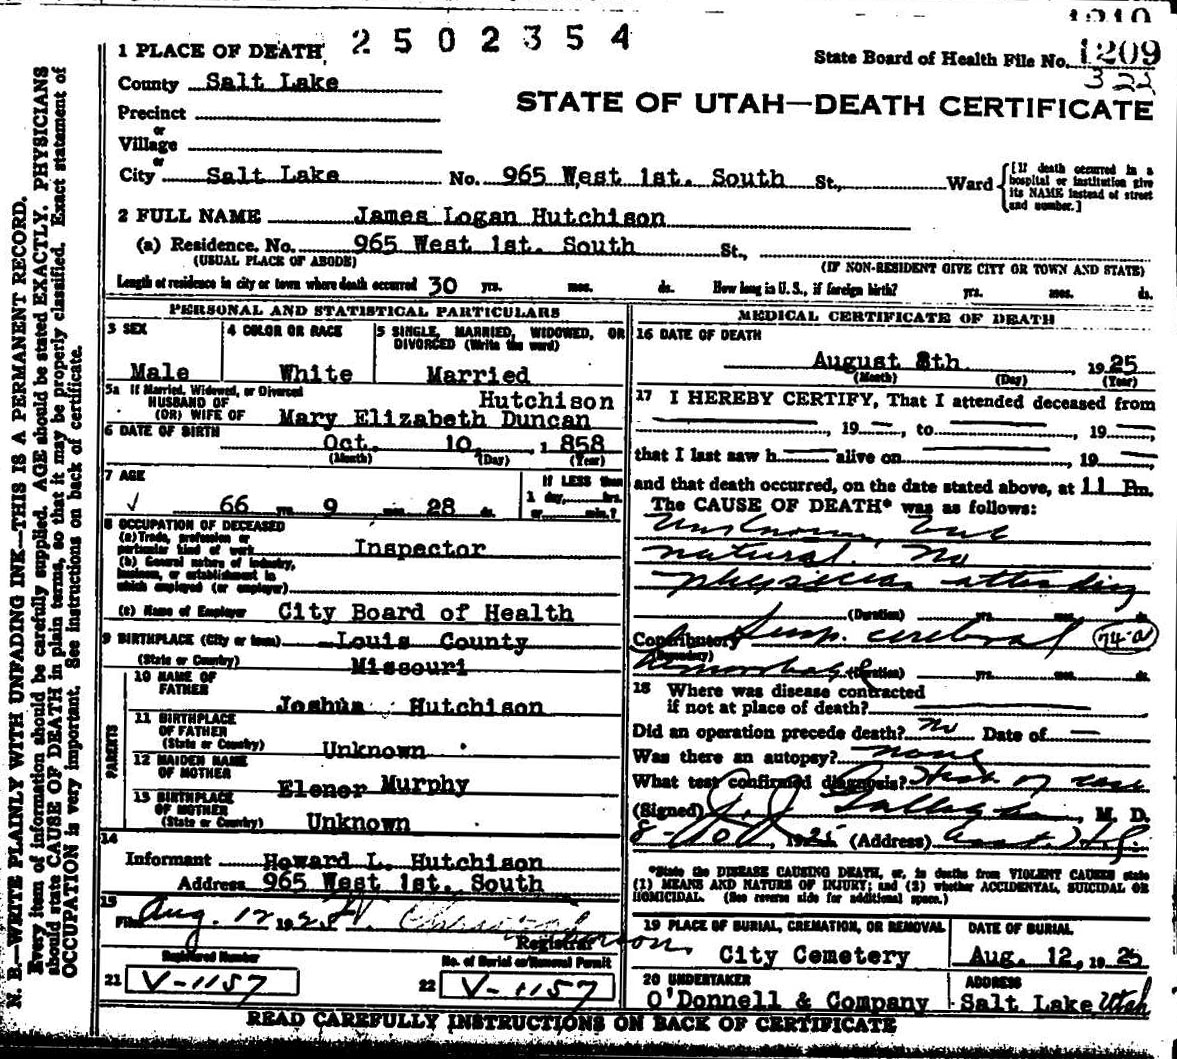 1210
2502354
1 PLACE OF DEATH
State Board of Health File No. 1209
322
County Salt Lake
STATE OF UTAH—DEATH CERTIFICATE
Precinct
or
Village
or
City Salt Lake No. 965 West 1st. South St., Ward
[If death occurred in a hospital or institution give its NAME instead of street and number.]
2 FULL NAME James Logan Hutchison
(a) Residence. No. 965 West 1st. South St.,
(USUAL PLACE OF ABODE) (IF NON-RESIDENT GIVE CITY OR TOWN AND STATE)
Length of residence in city or town where death occurred 30 yrs. mos. ds. How long in U. S., if foreign birth? yrs. mos. ds.
PERSONAL AND STATISTICAL PARTICULARS
3 SEX
Male
4 COLOR OR RACE
White
5 SINGLE, MARRIED, WIDOWED, OR DIVORCED (Write the word)
Married
5a If Married, Widowed, or Divorced
HUSBAND OF Hutchison
(OR) WIFE OF Mary Elizabeth Duncan
6 DATE OF BIRTH
Oct. 10, 1858
(Month) (Day) (Year)
7 AGE
66 yrs 9 mos. 28 ds.
If LESS than
1 day, hrs.
or min.?
8 OCCUPATION OF DECEASED
(a) Trade, profession or
particular kind of work Inspector
(b) General nature of industry,
business, or establishment in
which employed (or employer)
(c) Name of Employer City Board of Health
9 BIRTHPLACE (City or town) Louis County
(State or Country) Missouri
PARENTS
10 NAME OF
FATHER
Joshua Hutchison
11 BIRTHPLACE
OF FATHER
(State or Country) Unknown
12 MAIDEN NAME
OF MOTHER
Elener Murphy
13 BIRTHPLACE
OF MOTHER
(State or Country) Unknown
14
Informant Howard L. Hutchison
Address 965 West 1st. South
15
Filed Aug. 12 192
Registrar
Registered Number
21 V-1157
No. of Burial or Removal Permit
22 V-1157
MEDICAL CERTIFICATE OF DEATH
16 DATE OF DEATH
August 8th 1925
(Month) (Day) (Year)
17 I HEREBY CERTIFY, That I attended deceased from
, 19 , to , 19
that I last saw h alive on , 19
and that death occurred, on the date stated above, at 11 Pm.
The CAUSE OF DEATH* was as follows:
Unknown, but
natural. No
physician attending
(Duration) yrs. mos. ds.
Contributory cerebral 74-a
(Secondary)
hemorrhage (Duration) yrs. mos. ds.
18 Where was disease contracted
if not at place of death?
Did an operation precede death? No Date of —
Was there an autopsy? none
What test confirmed diagnosis?
(Signed) , M. D.
8- , 1925 (Address)
*State the DISEASE CAUSING DEATH, or, in deaths from VIOLENT CAUSES state
(1) MEANS AND NATURE OF INJURY; and (2) whether ACCIDENTAL, SUICIDAL OR
HOMICIDAL. (See reverse side for additional space.)
19 PLACE OF BURIAL, CREMATION, OR REMOVAL
City Cemetery
DATE OF BURIAL
Aug. 12, 1925
20 UNDERTAKER
O'Donnell & Company
ADDRESS
Salt Lake Utah
READ CAREFULLY INSTRUCTIONS ON BACK OF CERTIFICATE
N. B.—WRITE PLAINLY WITH UNFADING INK—THIS IS A PERMANENT RECORD.
Every item of information should be carefully supplied. AGE should be stated EXACTLY. PHYSICIANS
should state CAUSE OF DEATH in plain terms, so that it may be properly classified. Exact statement of
OCCUPATION is very important. See instructions on back of certificate.